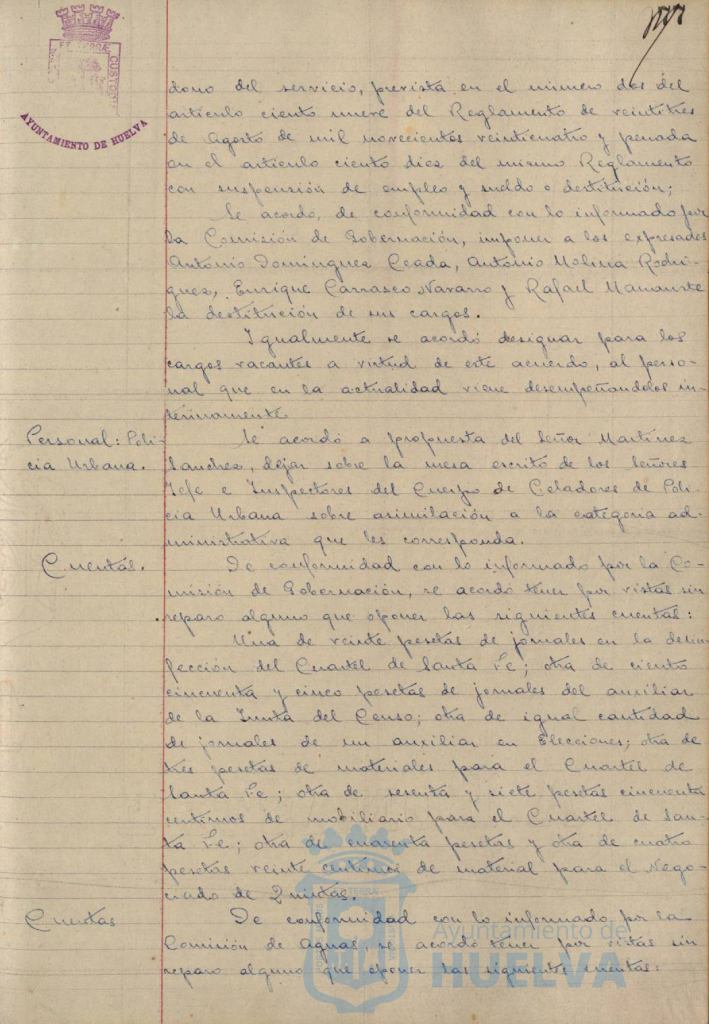 PORTUS MARIS
ET TERRAE
CUSTODIA
AYUNTAMIENTO DE HUELVA
dono del servicio, prevista en el número dos del
articulo ciento nueve del Reglamento de veintitres
de Agosto de mil novecientos veinticuatro y penada
en el articulo ciento diez del mismo Reglamento
con suspensión de empleo y sueldo o destitución;
Se acordo, de conformidad con lo informado por
la Comisión de Gobernación, imponer a los expresados
Antonio Dominguez Ceada, Antonio Molina Rodri-
guez, Enrique Carrasco Navarro y Rafael
la destitución de sus cargos.
Igualmente se acordó designar para los
cargos vacantes a virtud de este acuerdo, al perso-
nal que en la actualidad viene desempeñandolos in-
terinamente.
Personal: Poli-
cia Urbana.
Se acordó a propuesta del Señor Martínez
Sanchez, dejar sobre la mesa escrito de los Señores
Jefe e Inspectores del Cuerpo de Celadores de Poli-
cia Urbana sobre asimilación a la categoria ad-
ministrativa que les corresponda.
Cuentas.
De conformidad con lo informado por la Co-
misión de Gobernación, se acordó tener por vistas sin
reparo alguno que oponer las siguientes cuentas:
Una de veinte pesetas de jornales en la desin-
fección del Cuartel de Santa Fe; otra de ciento
cincuenta y cinco pesetas de jornales del auxiliar
de la Junta del Censo; otra de igual cantidad
de jornales de un auxiliar en Elecciones; otra de
tres pesetas de materiales para el Cuartel de
Santa Fe; otra de sesenta y siete pesetas cincuenta
centimos de mobiliario para el Cuartel de San-
ta Fe; otra de cuarenta pesetas y otra de cuatro
pesetas veinte centimos de material para el Nego-
ciado de Quintas.
Cuentas
De conformidad con lo informado por la
Comisión de Aguas, se acordó tener por vistas sin
reparo alguno que oponer las siguientes cuentas:
Ayuntamiento de
HUELVA